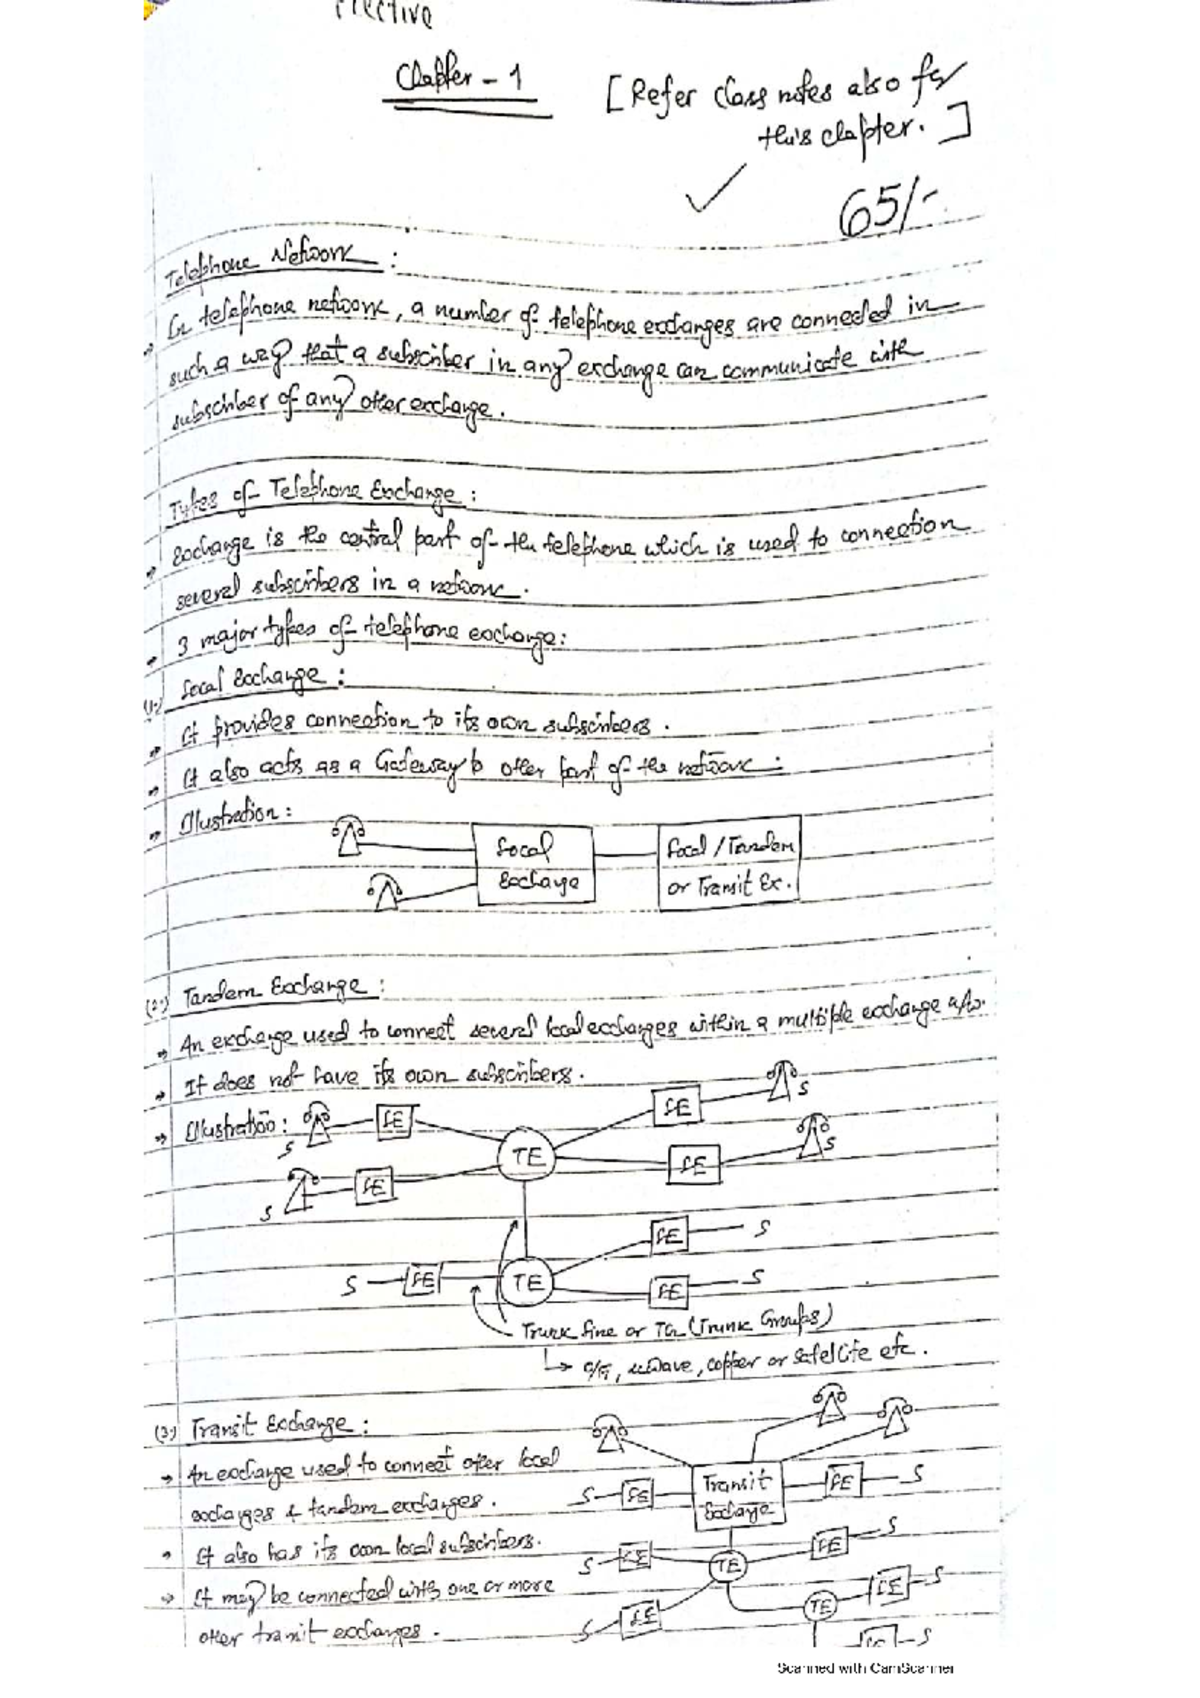 Elective
Chapter - 1
[Refer class notes also for
this chapter.]
65/-
Telephone Network :
In telephone network, a number of telephone exchanges are connected in
such a way that a subscriber in any exchange can communicate with
subscriber of any other exchange.
Types of Telephone Exchange :
Exchange is the central part of the telephone which is used to connection
several subscribers in a network.
3 major types of telephone exchange:
(1.) Local Exchange :
It provides connection to its own subscribers.
It also acts as a Gateway to other part of the network.
Illustration :
Local
Exchange
Local / Tandem
or Transit Ex.
(2.) Tandem Exchange :
An exchange used to connect several local exchanges within a multiple exchange n/w.
It does not have its own subscribers.
Illustration :
S
LE
TE
LE
S
S
LE
LE
S
LE
S
S
LE
TE
LE
S
Trunk Line or TG (Trunk Groups)
O/F, uwave, copper or satellite etc.
(3.) Transit Exchange :
An exchange used to connect other local
exchanges & tandem exchanges.
It also has its own local subscribers.
It may be connected with one or more
other transit exchanges.
S
LE
Transit
Exchange
LE
S
S
LE
TE
LE
S
S
LE
TE
LE
S
LE
S
Scanned with CamScanner